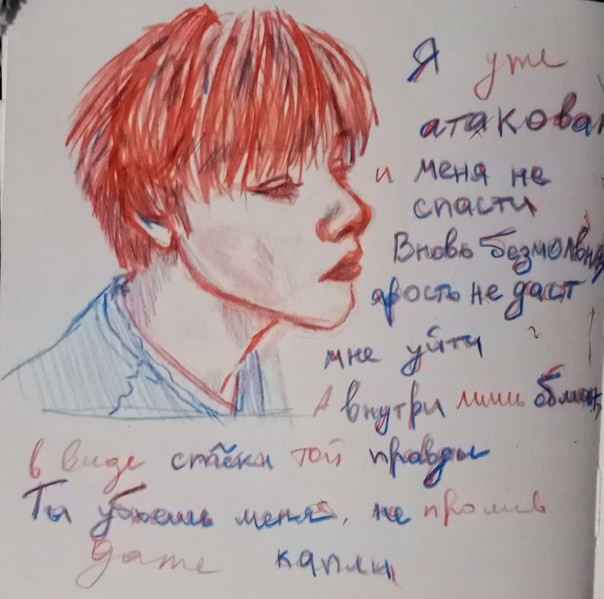 Я уже
атакован
и меня не
спасти
Вновь безмолвная
ярость не даст
мне уйти
А внутри лишь
в виде той правды
Ты убьешь меня, не пролив
даже капли